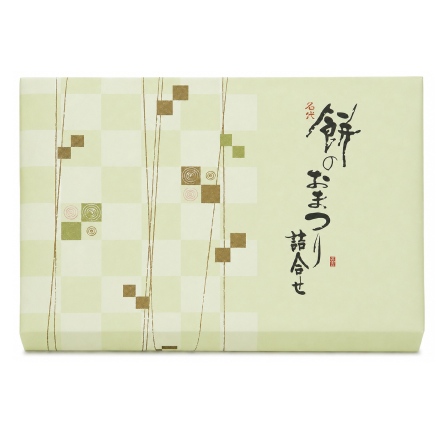 名代
餅のおまつり
詰合せ